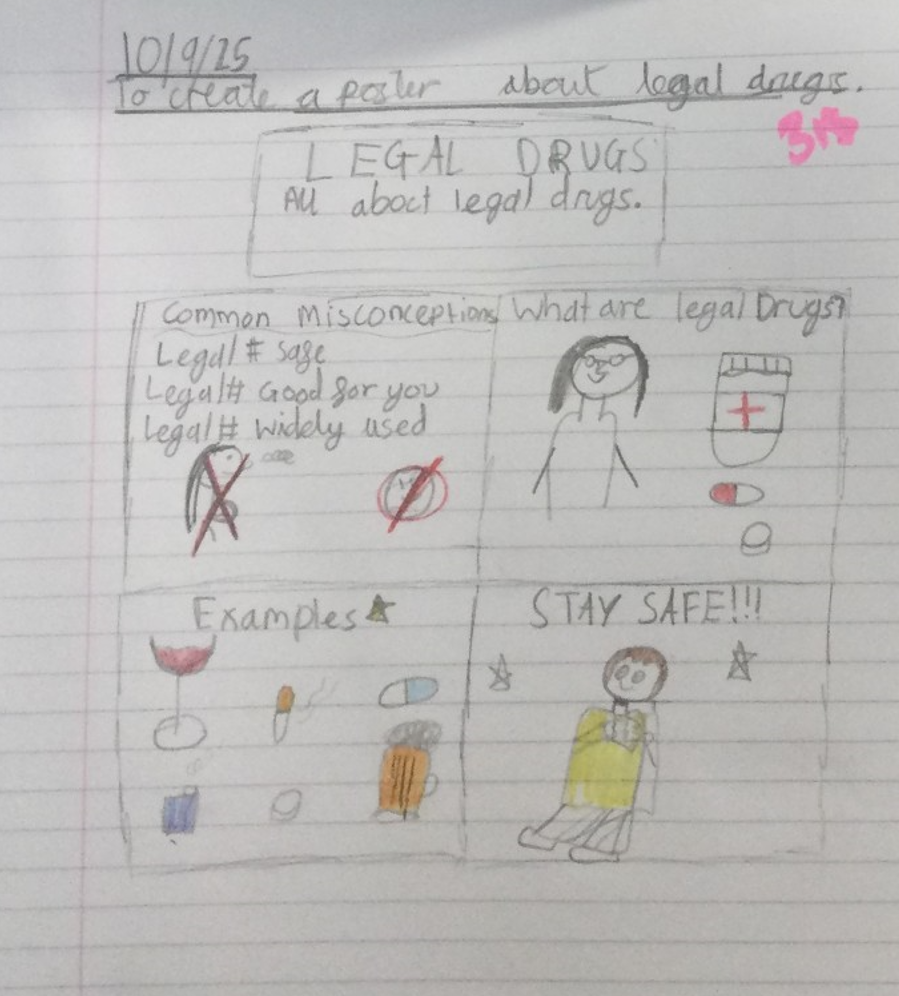 10/9/25
To create a poster about legal drugs.
LEGAL DRUGS
All about legal drugs.
Common Misconceptions
Legal ≠ safe
Legal ≠ Good for you
Legal ≠ widely used
What are legal Drugs?
Examples
STAY SAFE!!!